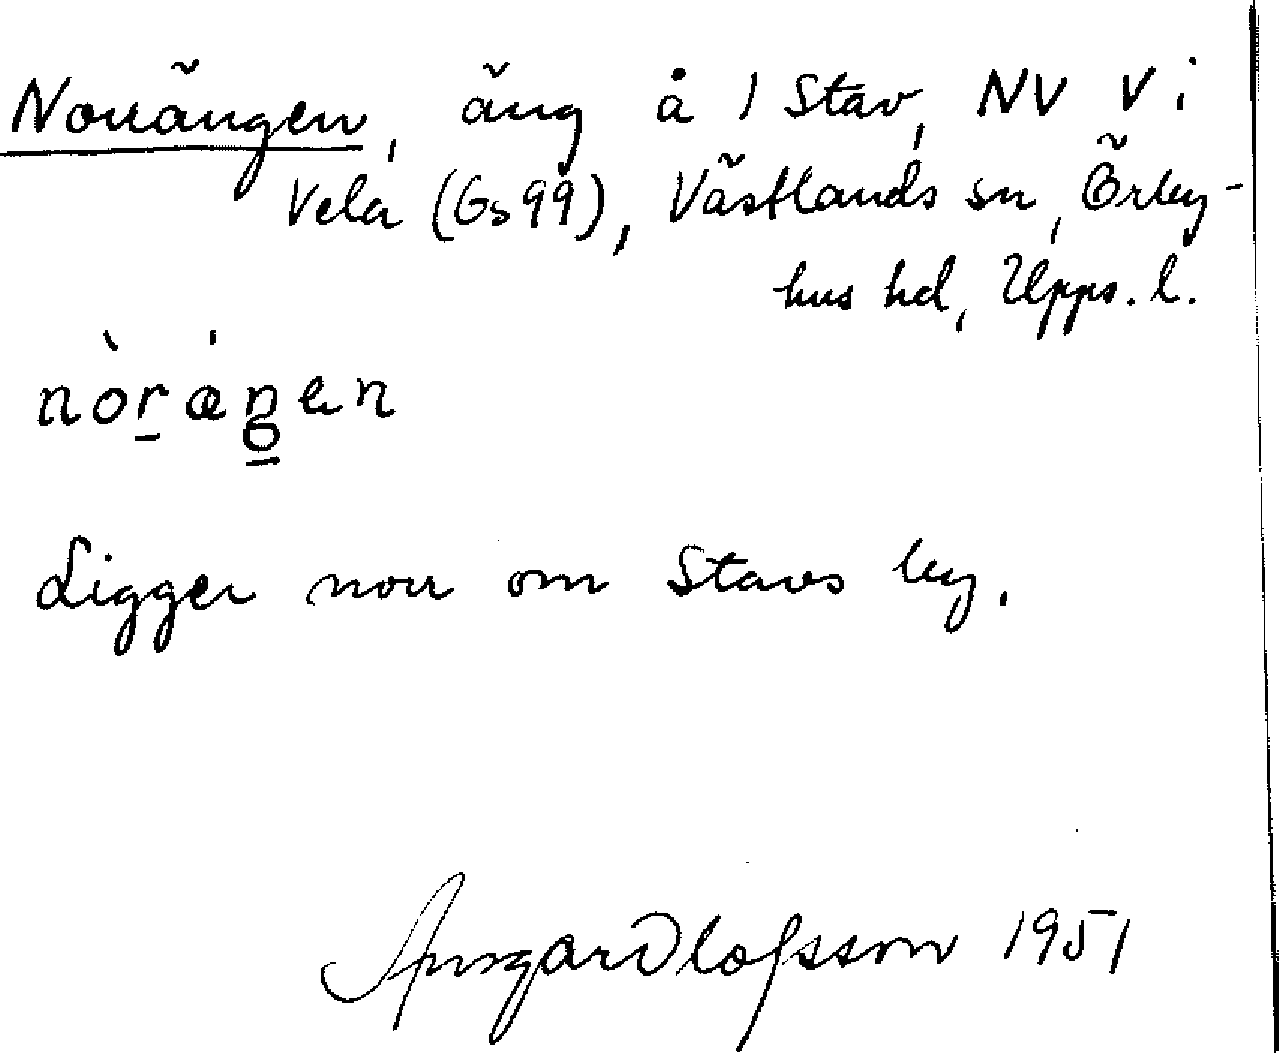 Norrängen, äng å 1 Stav, NV V i
Vela (Gs 99), Västlands sn, Örby-
hus hd, Upps. l.
nòrǽŋen
Ligger norr om Stavs by.
Ansgar Olofsson 1951